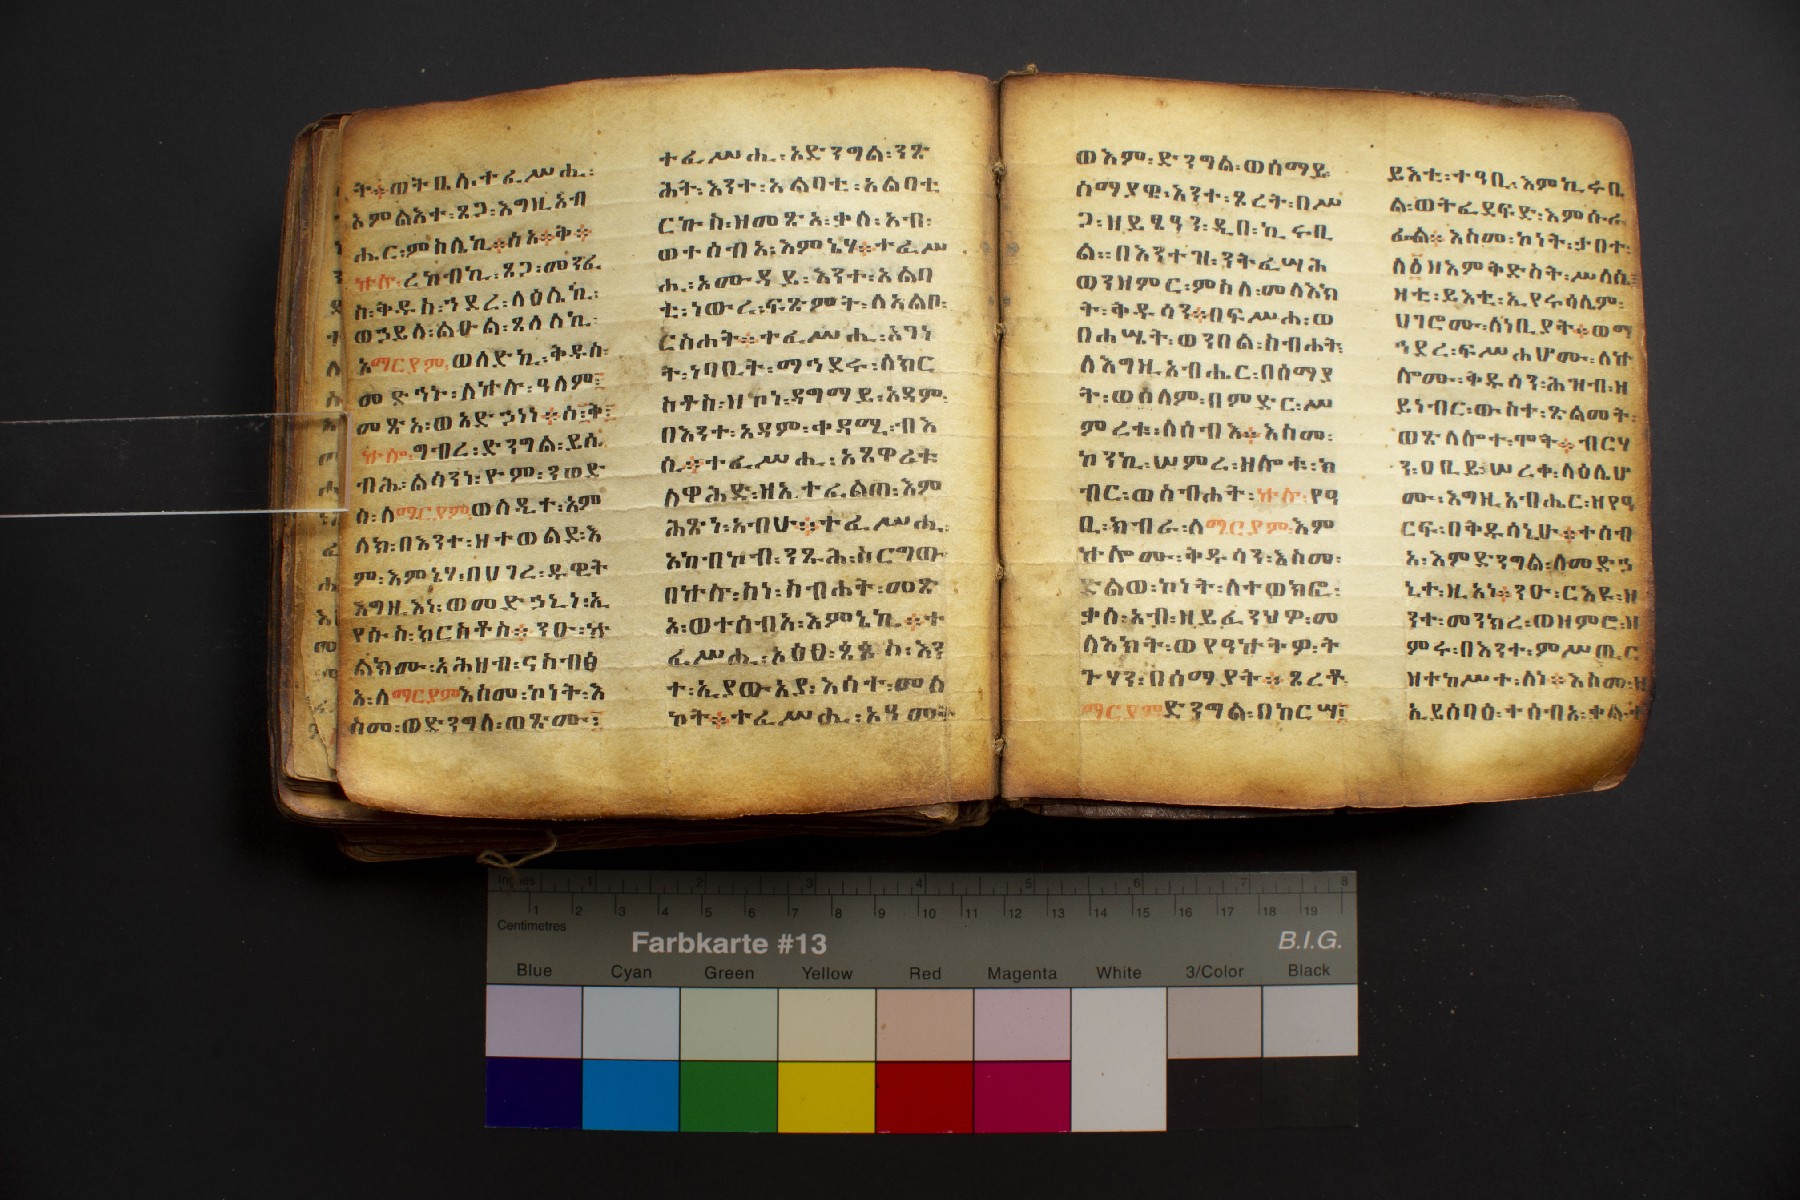 ት፡ወትቤሎ፡ተፈሥሒ፡
አምልእተ፡ጸጋ፡እግዚአብ
ሔር፡ምስሌኪ፡ሰአ፡ቅ፡
ኵሉ፡ረከብኪ፡ጸጋ፡መንፈ
ስ፡ቅዱስ፡ኀደረ፡ላዕሌኪ፡
ወኃይለ፡ልዑል፡ጸለለኪ፡
አማርያም፡ወለድኪ፡ቅዱስ፡
መድኀኑ፡ለኵሉ፡ዓለም፡
መጽአ፡ወአድኃነነ፡ሰ፡ቅ፡
ኵሎ፡ግብረ፡ድንግል፡ይሴ
ብሕ፡ልሳንነ፡ዮም፡ንወድ
ሳ፡ለማርያም፡ወላዲተ፡አም
ላክ፡በእንተ፡ዘተወልደ፡እ
ም፡እምኔሃ፡በሀገረ፡ዳዊት
እግዚእነ፡ወመድኃኒነ፡ኢ
የሱስ፡ክርስቶስ፡ንዑ፡ኵ
ልክሙ፡አሕዛብ፡ናስብፅ
አ፡ለማርያም፡እስመ፡ኮነት፡እ
ስመ፡ወድንግለ፡ወጽሙ፡
ተፈሥሒ፡አድንግል፡ንጽ
ሕት፡እንተ፡አልባቲ፡አልባቲ
ርኩስ፡ዘመጽአ፡ቃለ፡አብ፡
ወተሰብአ፡እምኔሃ፡ተፈሥ
ሒ፡አሙዳይ፡እንተ፡አልባ
ቲ፡ነውረ፡ፍጽምት፡ለአልቦ፡
ርስሐት፡ተፈሥሒ፡አገነ
ት፡ነባቢት፡ማኅደሩ፡ለክር
ስቶስ፡ዘኮነ፡ዳግማይ፡አዳም፡
በእንተ፡አዳም፡ቀዳሚ፡ብእ
ሲ፡ተፈሥሒ፡አጾዋሪቱ
ለዋሕድ፡ዘኢተፈልጠ፡እም
ሕጽነ፡አብሁ፡ተፈሥሒ፡
አከብካብ፡ንጹሕ፡ስርግው
በኵሉ፡ስነ፡ስብሐት፡መጽ
አ፡ወተሰብአ፡እምኔኪ፡ተ
ፈሥሒ፡አዕፀ፡ጳጦስ፡እን
ተ፡ኢያውአያ፡እሳተ፡መለ
ኮት፡ተፈሥሒ፡አዓመት
ወእም፡ድንግል፡ወሰማይ፡
ስማያዊ፡እንተ፡ጾረት፡በሥ
ጋ፡ዘይፄዓን፡ዲበ፡ኪሩቤ
ል፡፡በእንተዝ፡ንትፈሣሕ
ወንዘምር፡ምስለ፡መላእክ
ት፡ቅዱሳን፡በፍሥሐ፡ወ
በሐሤት፡ወንበል፡ስብሐት፡
ለእግዚአብሔር፡በሰማያ
ት፡ወሰላም፡በምድር፡ሥ
ምረቱ፡ለሰብእ፡እስመ፡
ኮንኪ፡ሠምረ፡ዘሎቱ፡ክ
ብር፡ወስብሐት፡ኵሉ፡የዓ
ቢ፡ክብራ፡ለማርያም፡እም
ኵሎሙ፡ቅዱሳን፡እስመ፡
ድልወ፡ኮነት፡ለተወክፎ፡
ቃለ፡አብ፡ዘይፈንህዎ፡መ
ላእክት፡ወየዓኵትዎ፡ት
ጉሃን፡በሰማያት፡ጾረቶ
ማርያም፡ድንግል፡በከርሣ፡
ይእቲ፡ተዓቢ፡እምኪሩቤ
ል፡ወትፈደፍድ፡እምሱራ
ፌል፡እስመ፡ኮነት፡ታቦተ፡
ለ፩ዘእምቅድስት፡ሥላሴ፡
ዛቲ፡ይእቲ፡ኢየሩሳሌም፡
ሀገሮሙ፡ለነቢያት፡ወማ
ኅደረ፡ፍሥሐሆሙ፡ለኵ
ሎሙ፡ቅዱሳን፡ሕዝብ፡ዘ
ይነብር፡ውስተ፡ጽልመት፡
ወጽላሎተ፡ሞት፡ብርሃ
ን፡ዐቢይ፡ሠረቀ፡ላዕሌሆ
ሙ፡እግዚአብሔር፡ዘየዓ
ርፍ፡በቅዱሳኒሁ፡ተሰብ
አ፡እምድንግል፡ለመድኃ
ኒተ፡ዚአነ፡ንዑ፡ርእዩ፡ዘ
ንተ፡መንክረ፡ወዘምሮ፡ዘ
ምሩ፡በእንተ፡ምሥጢር
ዘተከሥተ፡ለነ፡እስመ፡ዘ
ኢይሰባዕ፡ተሰብአ፡ቃል፡ተ
Inches 1 2 3 4 5 6 7 8
1 2 3 4 5 6 7 8 9 10 11 12 13 14 15 16 17 18 19
Centimetres
Farbkarte #13
B.I.G.
Blue Cyan Green Yellow Red Magenta White 3/Color Black